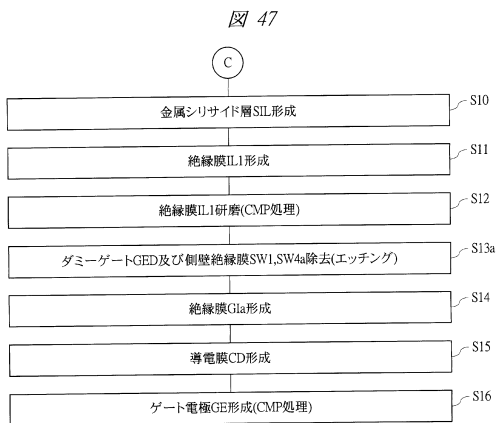 図 47
C
金属シリサイド層SIL形成
S10
絶縁膜IL1形成
S11
絶縁膜IL1研磨(CMP処理)
S12
ダミーゲートGED及び側壁絶縁膜SW1,SW4a除去(エッチング)
S13a
絶縁膜GIa形成
S14
導電膜CD形成
S15
ゲート電極GE形成(CMP処理)
S16